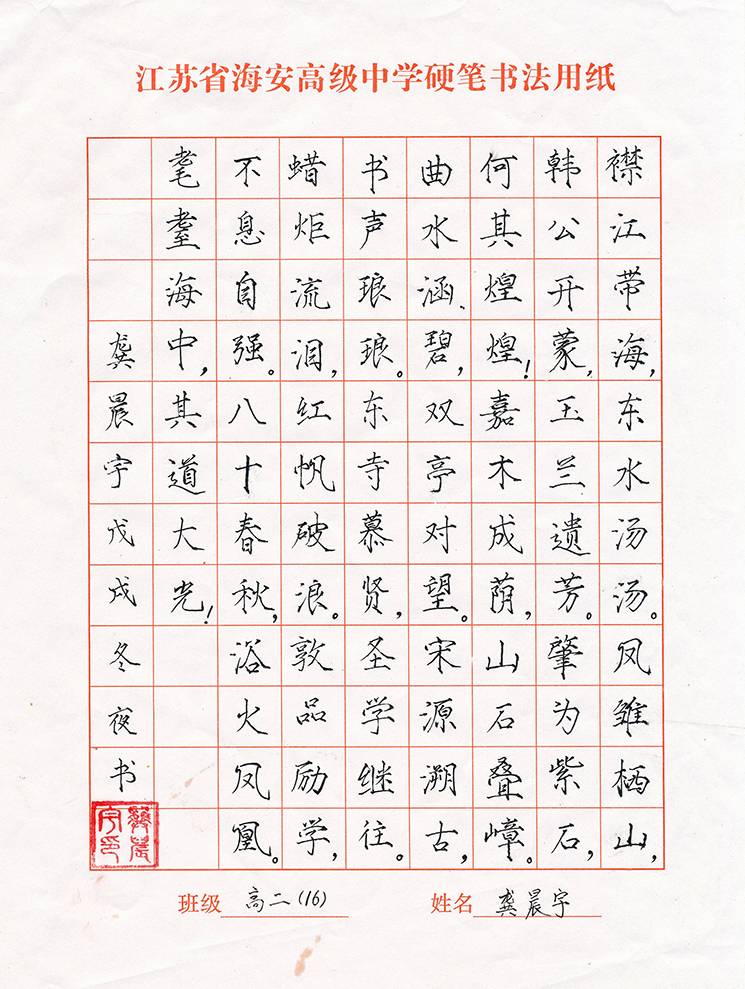 江苏省海安高级中学硬笔书法用纸
襟江带海，东水汤汤。凤雏栖山，
韩公开蒙，玉兰遗芳。肇为紫石，
何其煌煌！嘉木成荫，山石叠嶂。
曲水涵碧，双亭对望。宋源溯古，
书声琅琅。东寺慕贤，圣学继往。
蜡炬流泪，红帆破浪。敦品励学，
不息自强。八十春秋，浴火凤凰。
耄耋海中，其道大光！
龚晨宇戊戌冬夜书
龚晨宇印
班级 高二(16) 姓名 龚晨宇